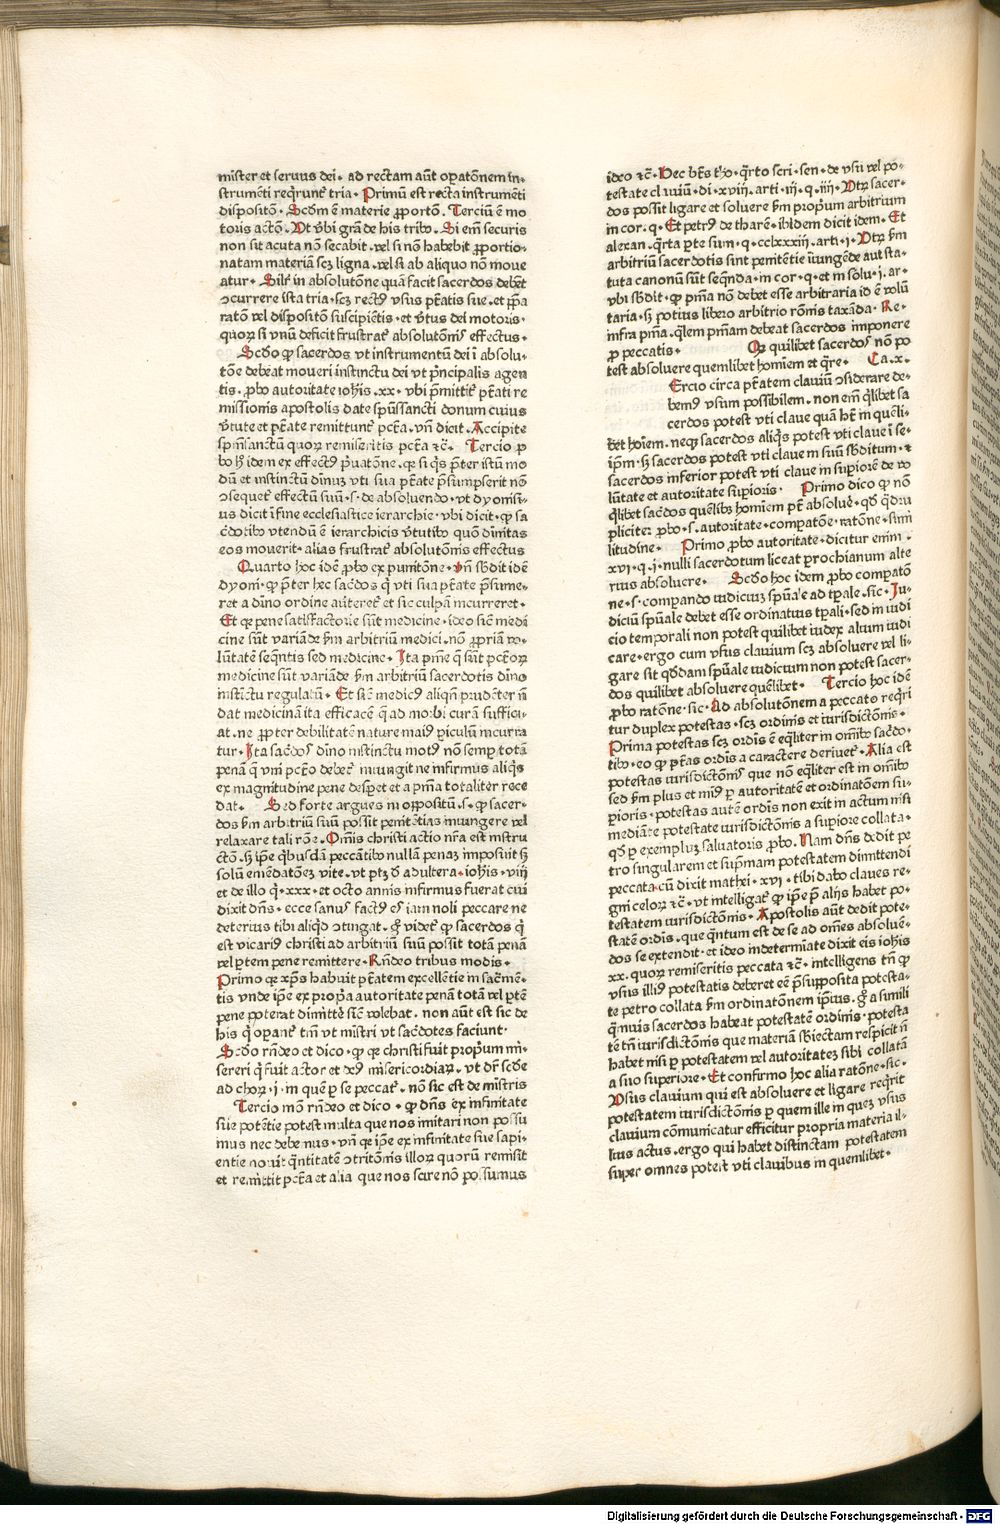 mīster et seruus dei · ad rectam aūt oꝑatōnem in-
strumēti reqͥrunt̃ tria · Primū est recta instrumēti
dispositō · Scd̃m ē materie ꝓportō · Terciū ē mo
toris actō · Vt vͤbi grã de his tribꝰ · Si em̄ securis
non sit acuta nō secabit · vel si nō habebit ꝓportio-
natam materiā scꝫ ligna · vel si ab aliquo nō moue
atur · Silr̃ in absolutōne quā facit sacerdos debet
ɔcurrere ista tria · scꝫ rectꝰ vsus ptãtis sue · et p̃pa
ratō vel dispositō suscipiētis · et vͤtus dei motoris ·
quoꝝ si vnū deficit frustrat̃ absolutōnis effectus ·
Scd̃o ꝙ sacerdos vt instrumentū dei ī absolu-
tōe debeat moueri instinctu dei vt pͥncipalis agen
tis · ꝓbo autoritate iohīs · xx · vbi ꝓmittit̃ ptãti re
missionis apostolis date spūssancti donum cuius
vͤtute et ptãte remittunt̃ pctã · vñ dicit · Accipite
spm̄sanctū quoꝝ remiseritis pctã ⁊c̃ · Tercio ꝓ
bo hͦ idem ex effectꝰ pͥuatōne · qꝛ si qͥs p̃ter istū mo
dū et instinctū dīnuꝫ vti sua ptãte p̃sumpserit nō
ɔsequet̃ effectū suū · s · de absoluendo · vt dyonisi-
us dicit ī fine ecclesiastice ierarchie · vbi dicit · ꝙ sa
cd̃otibꝰ vtendū ē ierarchicis vͤtutibꝰ quō diuinitas
eos mouerit · alias frustrat̃ absolutōnis effectus
Quarto hoc idē ꝓbo ex punitōne · vñ sb̃dit idē
dyoni · ꝙ p̃ter hec sacd̃os qͥ vti sua ptãte p̃sume-
ret a dīno ordine aūteret̃ et sic culpā incurreret ·
Et qꝛ pene satisfactorie sūt medicine · ideo sic̃ medi
cine sūt variāde ẜm arbitriū medici · nō ꝓpriā vo-
lūtatē seqͤntis sed medicine · Ita pnīe qͥ sūt pctōꝝ
medicine sūt variāde ẜm arbitriū sacerdotis dīno
instīctu regulatū · Et sic̃ medicꝰ aliqñ prudēter nō
dat medicinā ita efficacē qͥ ad morbi curā suffici-
at · ne ꝓpter debilitatē nature maiꝰ ꝑiculū incurra
tur · Ita sacd̃os dīno instinctu motꝰ nō semꝑ totā
penā qͥ vni pctō debet̃ iniungit ne infirmus aliqͥs
ex magnitudine pene desꝑet et a pnīa totaliter rece
dat · Sed forte argues in oppositū · s · ꝙ sacer-
dos ẜm arbitriū suū possit penitētias iniungere vel
relaxare tali rōe · Om̄is christi actio nr̃a est instru
ctō · sꝫ ip̄e qͥbusdā peccātibꝰ nullā penaꝫ imposuit sꝫ
solū emēdatōeꝫ vite · vt ptꝫ ꝺ adultera · iohīs · viii
et de illo qͥ · xxx · et octo annis infirmus fuerat cui
dixit dn̄s · ecce sanus factꝰ es iam noli peccare ne
deterius tibi aliqͥd ɔtingat · gͦ videt̃ ꝙ sacerdos qͥ
est vicariꝰ christi ad arbitriū suū possit totā penā
vel ꝑtem pene remittere · Rn̄deo tribus modis ·
Primo qꝛ xp̄s habuit ptãtem excellētie in sacr̃mē-
tis vnde ip̄e ex ꝓpͥa autoritate penā totā vel ꝑtē
pene poterat dimittͤe sic̃ volebat · non aūt est sic de
his qͥ oꝑant̃ tm̄ vt mīstri vt sacd̃otes faciunt ·
Scd̃o rn̄deo et dico · ꝙ qꝛ christi fuit propͥum mi-
sereri qͥ fuit actor et dꝰ misericordiaꝝ · vt dr̃ scd̃e
ad choꝝ · i · in quē ꝑ se peccat̃ · nō sic est de mīstris
Tercio mō rn̄deo et dico · ꝙ dn̄s ex infinitate
sue potētie potest multa que nos imitari non possu
mus nec debemus · vñ qꝛ ip̄e ex infinitate sue sapi-
entie nouit qͣntitatē ɔtritōnis illoꝝ quoꝝ remisit
et remittit pctã et alia que nos scire nō possumus
ideo ⁊c̃ · Hec bt̃s tho · qͣrto scri · sen · de vsu vel po-
testate clauiū · di · xviii · arti · iii · q · iiii · Vtꝝ sacer-
dos possit ligare et soluere ẜm propͥum arbitrium
in cor · q · Et petrꝰ de tharē · ibīdem dicit idem · Et
alexan · qͣrta ꝑte sum · q · cclxxxiii · arti · i · Vtꝝ ẜm
arbitriū sacerdotis sint penitētie iniungēde aut sta-
tuta canonū sūt seqn̄da · in cor · q · et in solu · i · ar-
vbi sb̃dit · ꝙ pnīa nō debet esse arbitraria id ē volū
taria · sꝫ potius libero arbitrio rōnis taxāda · Re-
infra pnīa · qͣlem pnīam debeat sacerdos imponere
ꝓ peccatis · Qꝛ quilibet sacerdos nō po
test absoluere quemlibet hoīem et qͣre · Ca · x ·
Tercio circa ptãtem clauiū ɔsiderare de-
bemꝰ vsum possibilem · non em̄ qͥlibet sa
cerdos potest vti claue quā hꝫ in queli-
bet hoīem · neqꝫ sacerdos aliqͥs potest vti claue ī se-
ip̄m · sꝫ sacerdos potest vti claue in suū sb̃ditum · ⁊
sacerdos inferior potest vti claue in suꝑiorē de vo
lūtate et autoritate suꝑioris · Primo dico ꝙ nō
qͥlibet sacd̃os quēlibꝫ hoīem pt̃ absoluͤe · qd̃ qͣdru
pliciteꝝ ꝓbo · s · autoritate · comꝑatōe · ratōne · simi
litudine · Primo ꝓbo autoritate · dicitur enim ·
xvi · q · i · nulli sacerdotum liceat ꝑochianum alte
rius absoluere · Scd̃o hoc idem ꝓbo comꝑatō
ne · s · comꝑando iudiciuꝫ spūale ad tꝑale · sic · Iu-
diciū spūale debet esse ordinatius tꝑali · sed in iudi
cio temporali non potest quilibet iudex alium iudi
care · ergo cum vsus clauium scꝫ absoluere vel li-
gare sit qd̃dam spūale iudicium non potest sacer-
dos quilibet absoluere quēlibet · Tercio hoc idē
ꝓbo ratōne · sic · Ad absolutōnem a peccato reqͥri
tur duplex potestas · scꝫ ordinis et iurisdictōnis ·
Prima potestas scꝫ ordīs ē eqͣliter in om̄ibꝰ sacd̃o-
tibꝰ · eo ꝙ ptãs ordīs a caractere deriuet̃ · Alia est
potestas iurisdictōnis que nō eqͣliter est in om̄ibꝰ
sed ẜm plus et minꝰ ꝑ autoritatē et ordinatōem su-
ꝑioris · potestas autē ordīs non exit in actum nisi
mediāte potestate iurisdictōnis a suꝑiore collata ·
qd̃ ꝑ exempluꝫ saluatoris ꝓbo · Nam dn̄s dedit pe
tro singularem et supͤmam potestatem dimittendi
peccata · cū dixit mathei · xvi · tibi dabo claues re-
gni celoꝝ ⁊c̃ · vt intelligat̃ ꝙ ip̄e pͤ alijs habet po-
testatem iurisdictōnis · Apostolis aūt dedit pote-
statē ordīs · que qͣntum est de se ad om̄es absoluē-
dos se extendit · et ideo indeterm̄iate dixit eis iohīs
xx · quoꝝ remiseritis peccata ⁊c̃ · intelligens tn̄ ꝙ
vsus illiꝰ potestatis deberet eē pͤsupposita potesta-
te petro collata ẜm ordinatōnem ip̄ius · gͦ a simili
qͣmuis sacerdos habeat potestatē ordinis · potesta
tē tn̄ iurisdictōnis que materiā sb̃iectam respicit nō
habet nisi ꝑ potestatem vel autoritateꝫ sibi collatā
a suo superiore · Et confirmo hoc alia ratōne · sic ·
Vsus clauium qui est absoluere et ligare reqͥrit
potestatem iurisdictōnis ꝑ quem ille in queꝫ vsus
clauium cōmunicatur efficitur propria materia il-
lius actus · ergo qui habet distinctam potestatem
super omnes potest vti clauibus in quemlibet ·
Digitalisierung gefördert durch die Deutsche Forschungsgemeinschaft - DFG